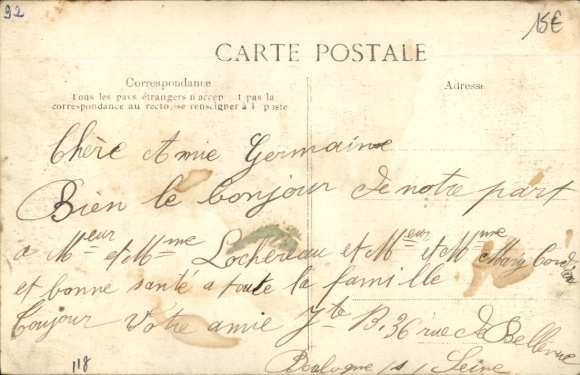 92
15€
CARTE POSTALE
Correspondance
Adresse
Tous les pays étrangers n'accep t pas la
correspondance au recto, se renseigner à l poste
Chère Amie Germaine
Bien le bonjour de notre part
a Meur et Mme Lochereau et Meur et Mme
et bonne santé a toute la famille
Toujour Votre amie Yte B, 36 rue de Bellevue
Boulogne /s/ Seine
118